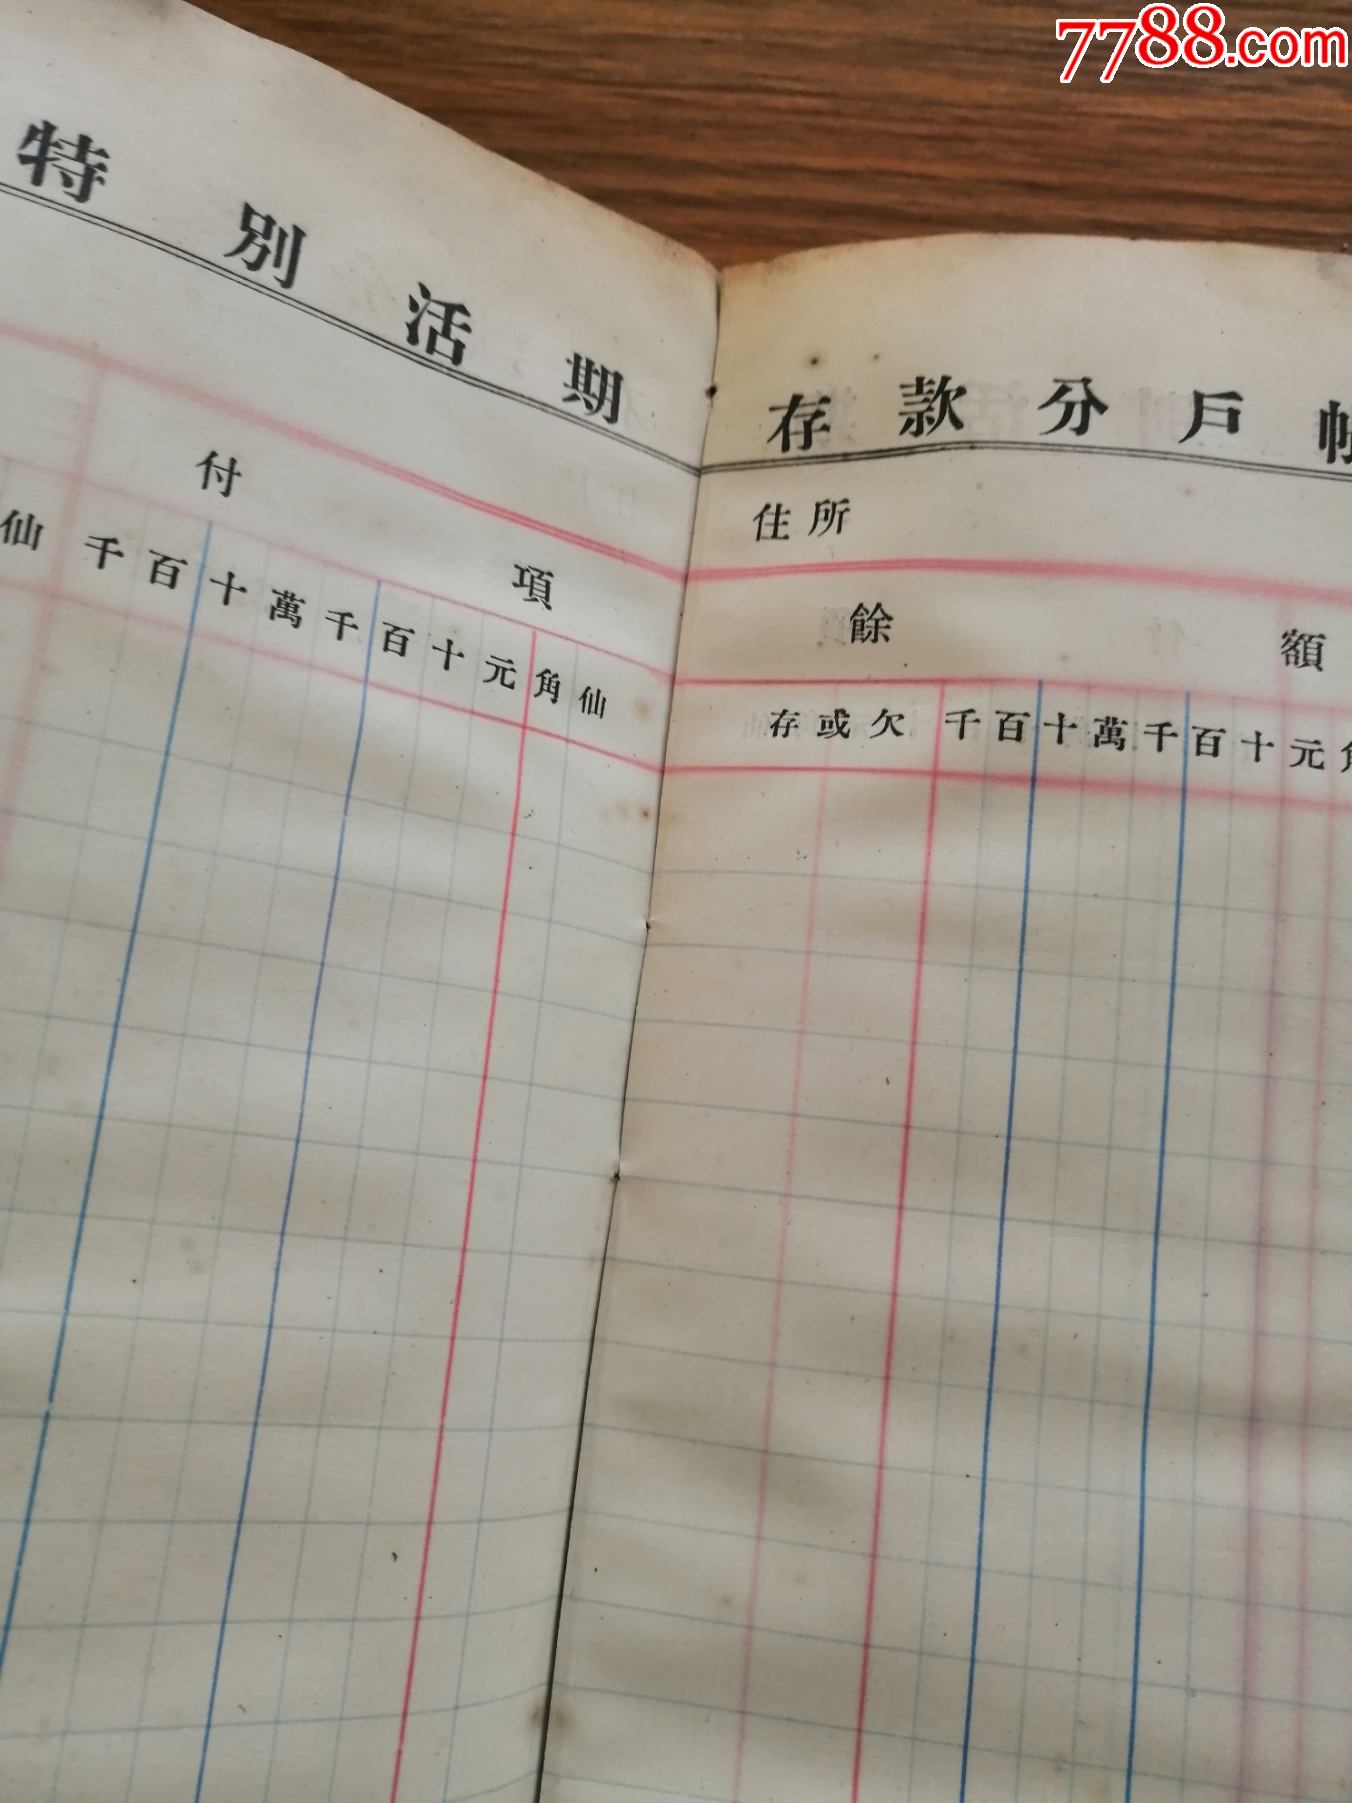 7788.com
特別活期存款分戶帳
住所
付項
餘額
仙千百十萬千百十元角仙
存或欠千百十萬千百十元角